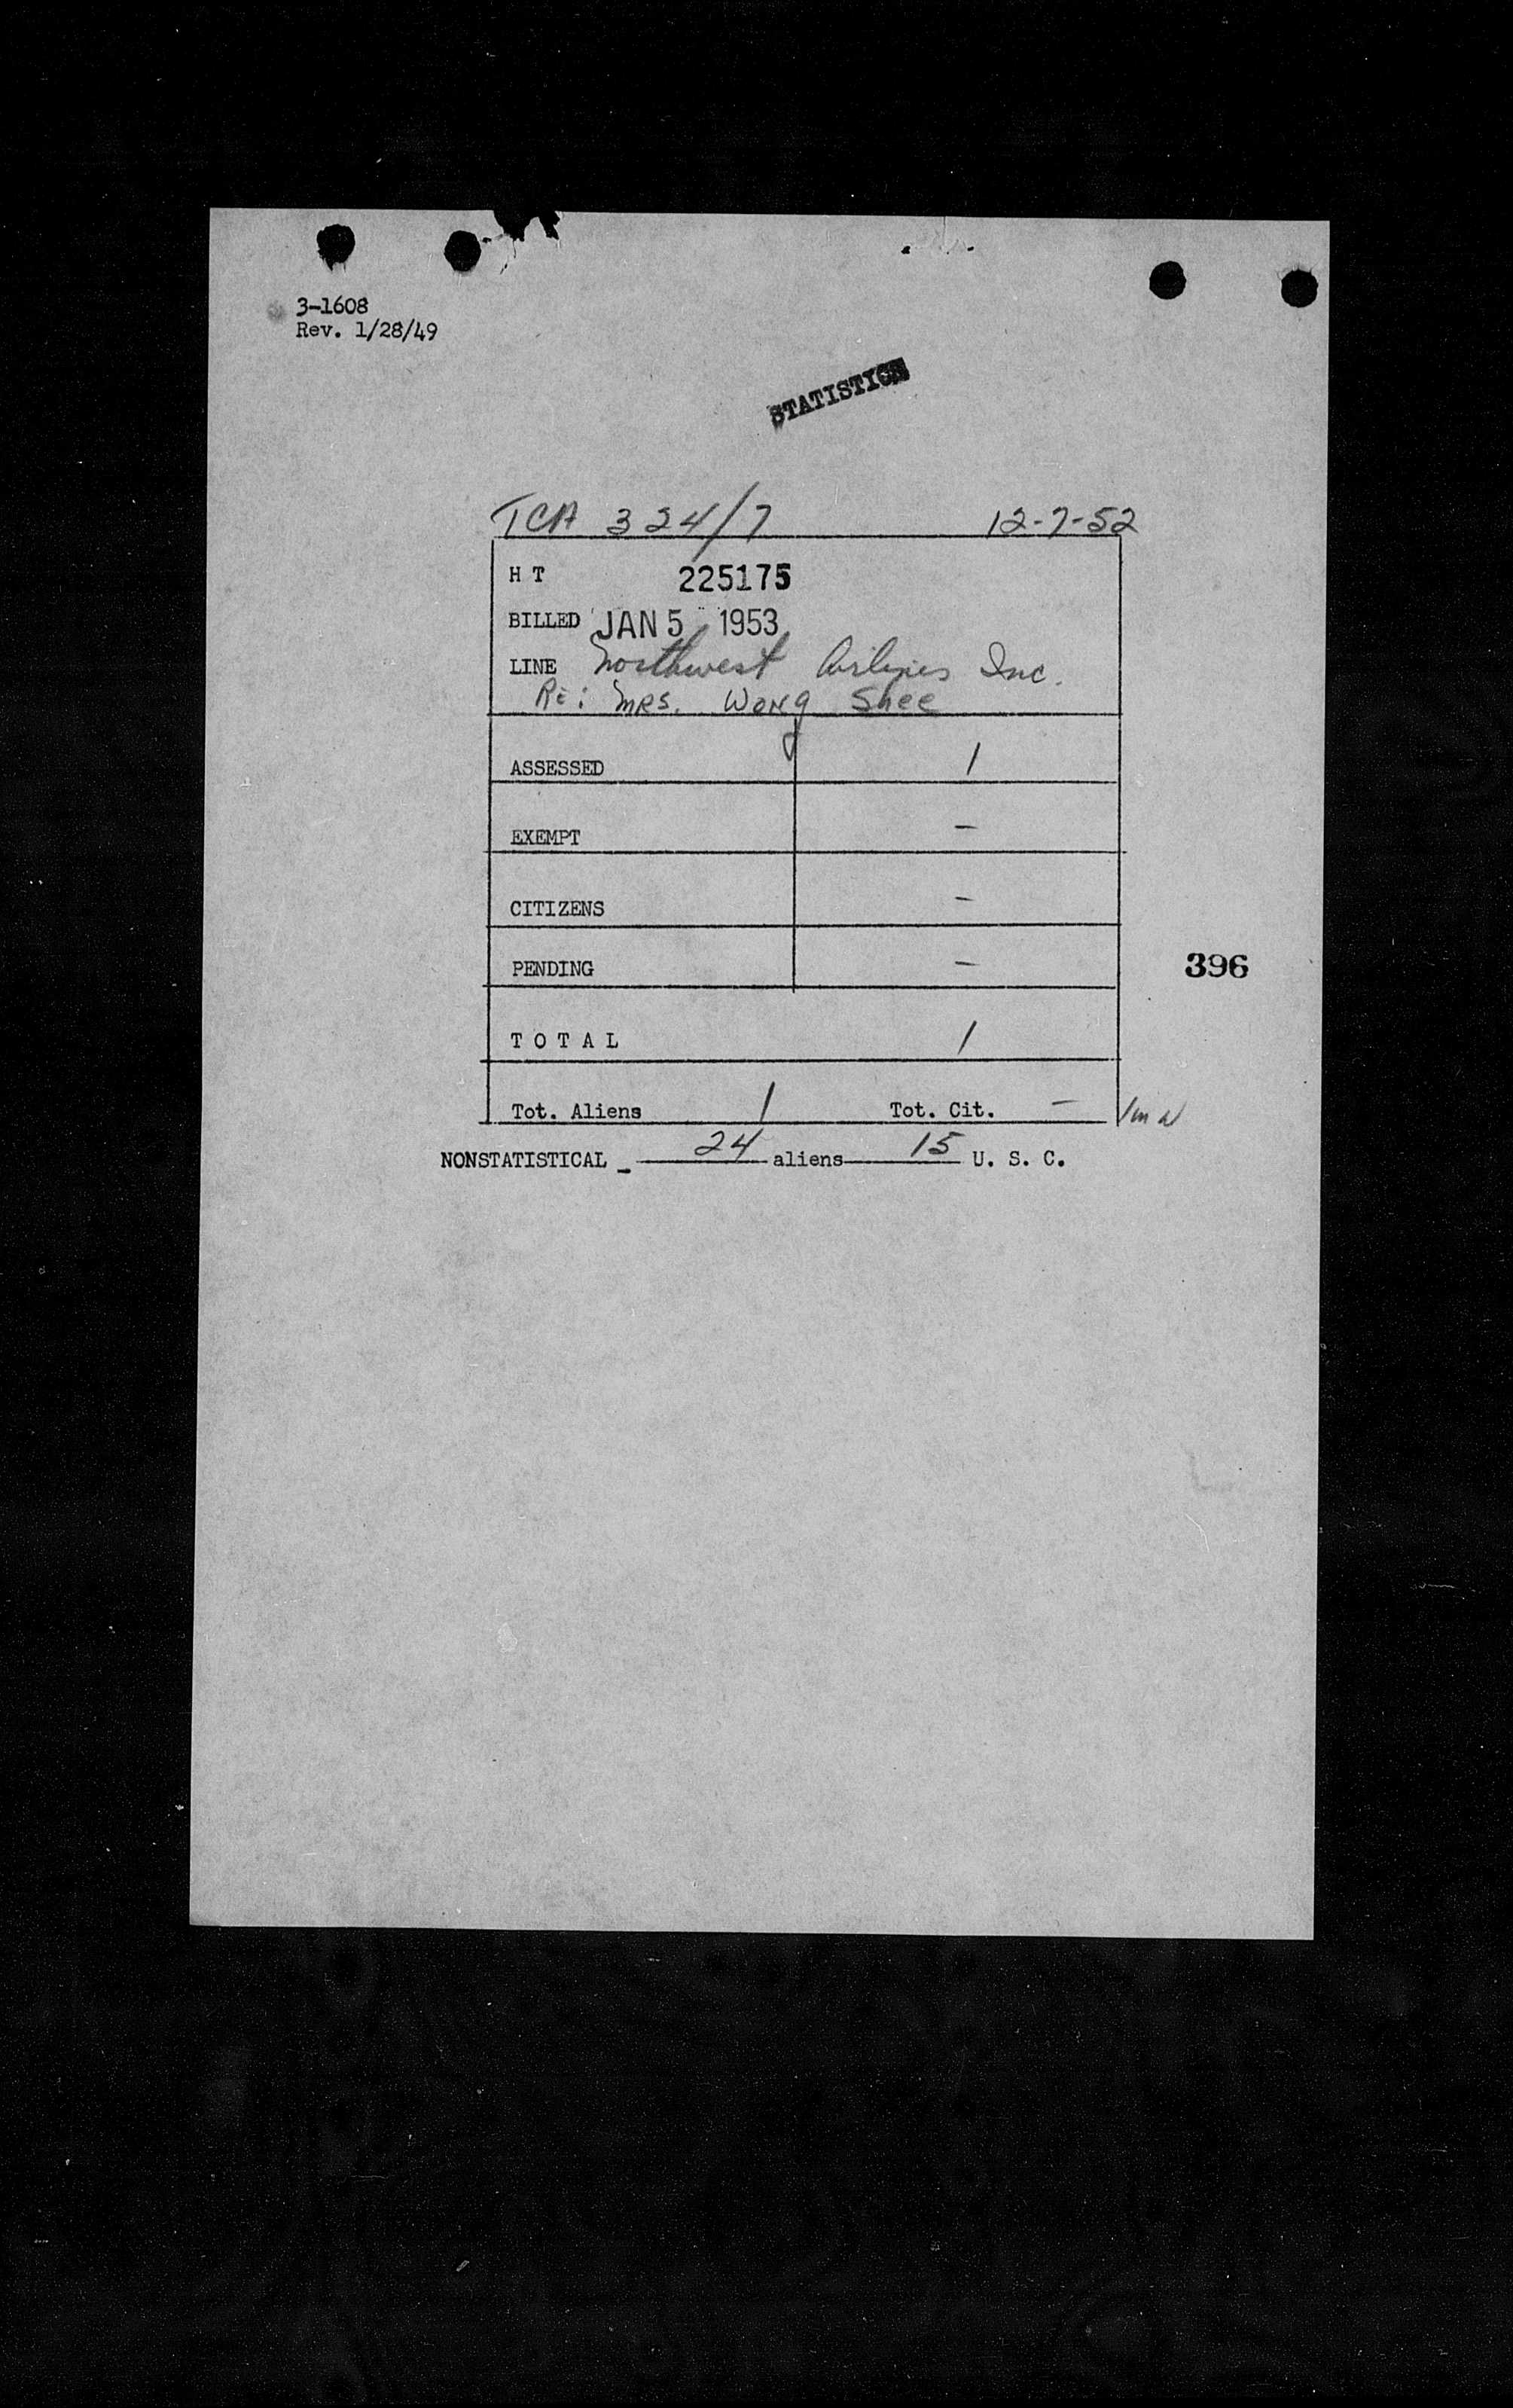 3-1608
Rev. 1/28/49
STATISTICS
TCA 324/7 12-7-52
H T 225175
BILLED JAN 5 1953
LINE Northwest Airlines Inc.
Re: MRS. Wong Shee
ASSESSED 1
EXEMPT -
CITIZENS -
PENDING -
396
T O T A L 1
Tot. Aliens 1 Tot. Cit. -
NONSTATISTICAL - 24 aliens 15 U. S. C.